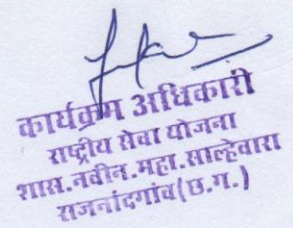 कार्यक्रम अधिकारी
राष्ट्रीय सेवा योजना
शास.नवीन.महा.साल्हेवारा
राजनांदगांव(छ.ग.)